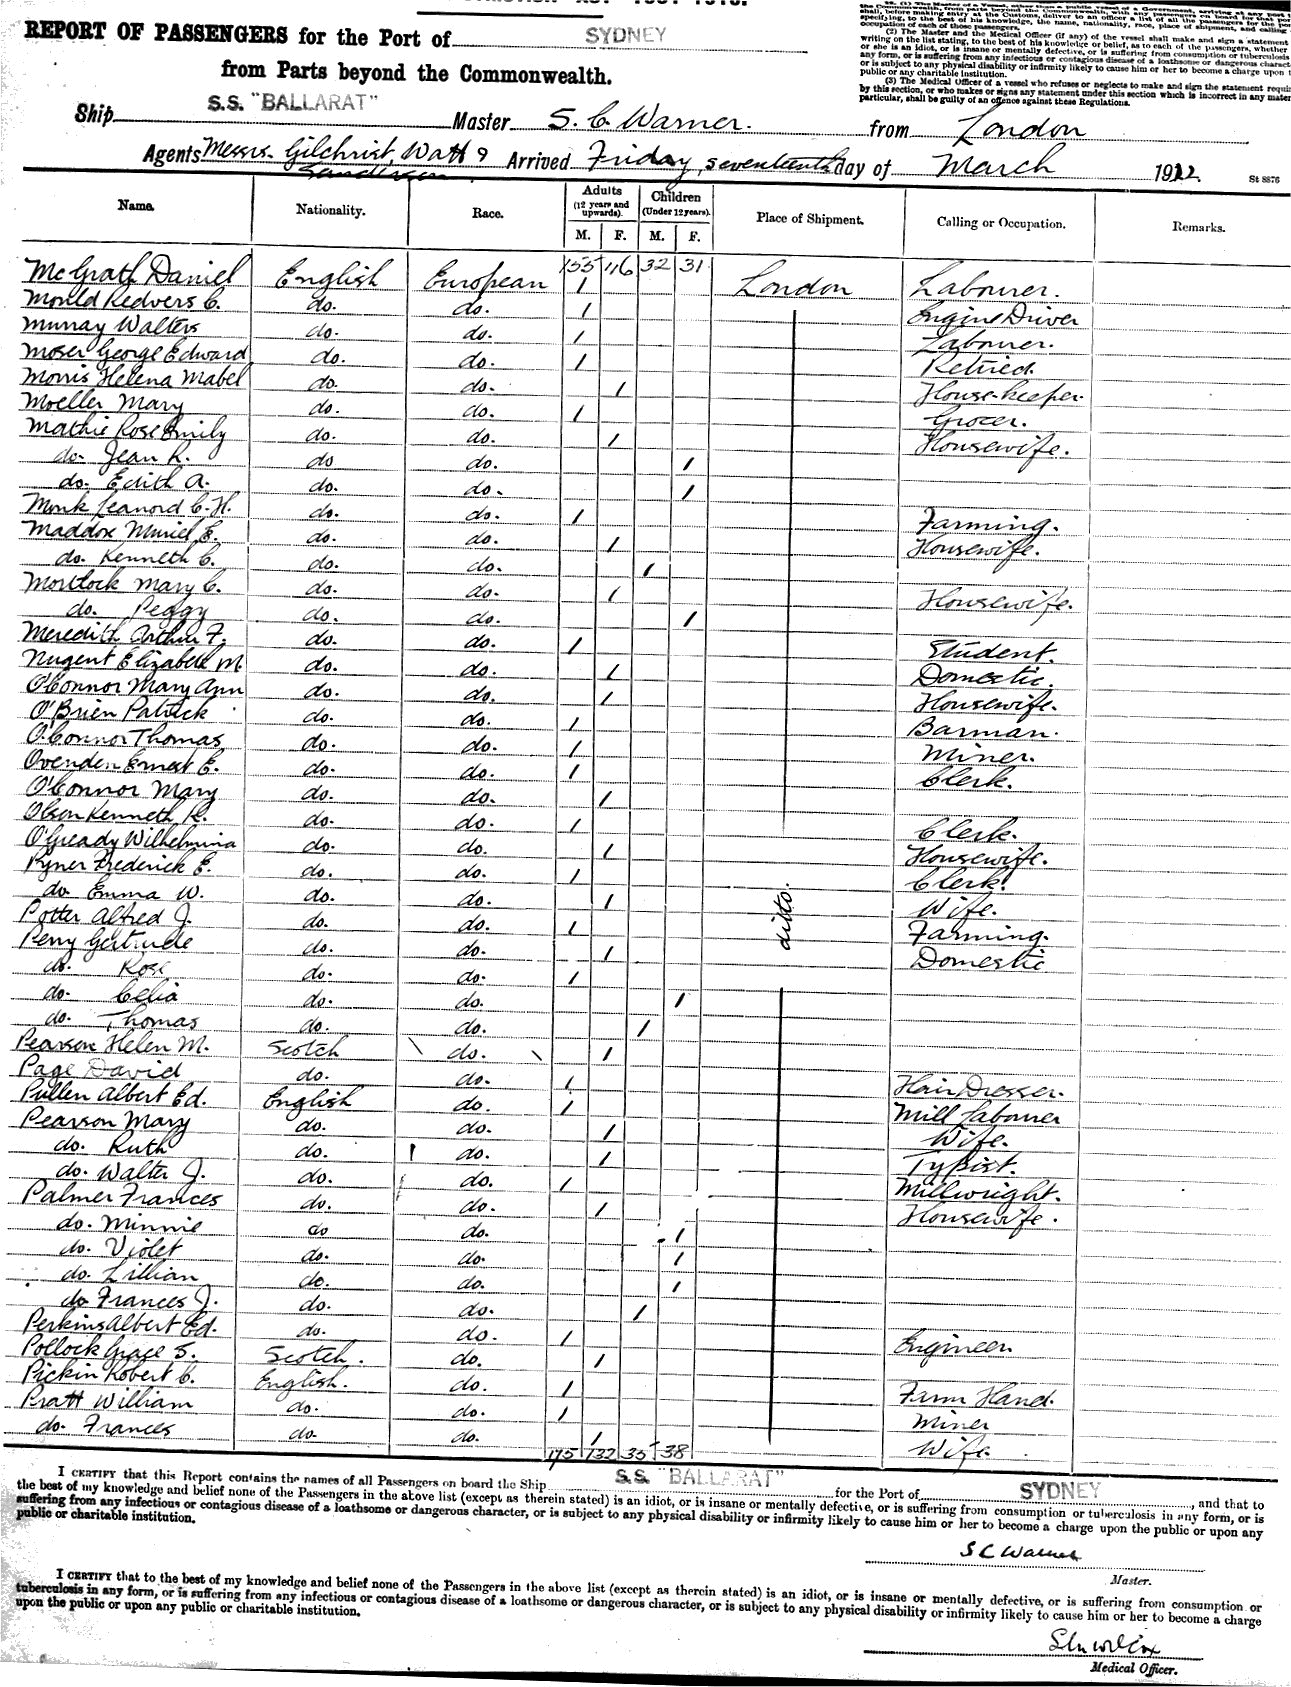 REPORT OF PASSENGERS for the Port of SYDNEY
from Parts beyond the Commonwealth.
shall, before making entry at the Customs, deliver to an officer a list of all the passengers
specifying, to the best of his knowledge, the name, nationality, race, place of shipment, and calling
occupation of each of those passengers.
(2) The Master and the Medical Officer (if any) of the vessel shall make and sign a statement
writing on the list stating, to the best of his knowledge or belief, as to each of the passengers, whether
or she is an idiot, or is insane or mentally defective, or is suffering from consumption or tuberculosis
any form, or is suffering from any infectious or contagious disease of a loathsome or dangerous
or is subject to any physical disability or infirmity likely to cause him or her to become a charge upon
public or any charitable institution.
(3) The Medical Officer of a vessel who refuses or neglects to make and sign the statement
by this section, or who makes or signs any statement under this section which is incorrect in any
particular, shall be guilty of an offence against these Regulations.
Ship S.S. "BALLARAT" Master S. C. Warner. from London
Agents Messrs. Gilchrist, Watt & Sanderson Arrived Friday, seventeenth day of March 1922. St 8876
Name. Nationality. Race. Adults (12 years and upwards). Children (Under 12 years). Place of Shipment. Calling or Occupation. Remarks.
M. F. M. F.
155 116 32 31
McGrath Daniel English European 1 London Labourer.
Mould Redvers C. do. do. 1 Engine Driver
Murray Walters do. do. 1 Labourer.
Moser George Edward do. do. 1 Retired.
Morris Helena Mabel do. do. 1 House-keeper.
Moeller Mary do. do. 1 Grocer.
Mathie Rose Emily do. do. 1 Housewife.
do. Jean R. do do. 1
do. Edith A. do. do. 1
Monk Leanord C. H. do. do. 1 Farming.
Maddox Muriel E. do. do. 1 Housewife.
do. Kenneth C. do. do. 1
Mortlock Mary C. do. do. 1 Housewife.
do. Peggy do. do. 1
Meredith Arthur F. do. do. 1 Student.
Nugent Elizabeth M. do. do. 1 Domestic.
O'Connor Mary Ann do. do. 1 Housewife.
O'Brien Patrick do. do. 1 Barman.
O'Connor Thomas do. do. 1 Miner.
Ovenden Ernest E. do. do. 1 Clerk.
O'Connor Mary do. do. 1
Olson Kenneth R. do. do. 1 Clerk.
O'Gready Wilhelmina do. do. 1 Housewife.
Pyner Frederick E. do. do. 1 Clerk.
do. Emma W. do. do. 1 ditto. Wife.
Potter Alfred J. do. do. 1 Farming.
Perry Gertrude do. do. 1 Domestic
do. Rose do. do. 1
do. Celia do. do. 1
do. Thomas do. do. 1
Pearson Helen M. Scotch do. 1
Page David do. do. 1 Hair Dresser.
Pullen Albert Ed. English do. 1 Mill Labourer
Pearson Mary do. do. 1 Wife.
do. Ruth do. do. 1 Typist.
do. Walter J. do. do. 1 Millwright.
Palmer Frances do. do. 1 Housewife.
do. Minnie do do. 1
do. Violet do. do. 1
do. Lillian do. do. 1
do Frances J. do. do. 1
Perkins Albert Ed. do. do. 1 Engineer
Pollock Grace S. Scotch. do. 1
Pickin Robert C. English. do. 1 Farm Hand.
Pratt William do. do. 1 Miner
do. Frances do. do. 1 Wife.
175 132 35 38
I CERTIFY that this Report contains the names of all Passengers on board the Ship S.S. "BALLARAT" for the Port of SYDNEY, and that to
the best of my knowledge and belief none of the Passengers in the above list (except as therein stated) is an idiot, or is insane or mentally defective, or is suffering from consumption or tuberculosis in any form, or is
suffering from any infectious or contagious disease of a loathsome or dangerous character, or is subject to any physical disability or infirmity likely to cause him or her to become a charge upon the public or upon any
public or charitable institution.
S C Warner
Master.
I CERTIFY that to the best of my knowledge and belief none of the Passengers in the above list (except as therein stated) is an idiot, or is insane or mentally defective, or is suffering from consumption or
tuberculosis in any form, or is suffering from any infectious or contagious disease of a loathsome or dangerous character, or is subject to any physical disability or infirmity likely to cause him or her to become a charge
upon the public or upon any public or charitable institution.
Wilcox
Medical Officer.